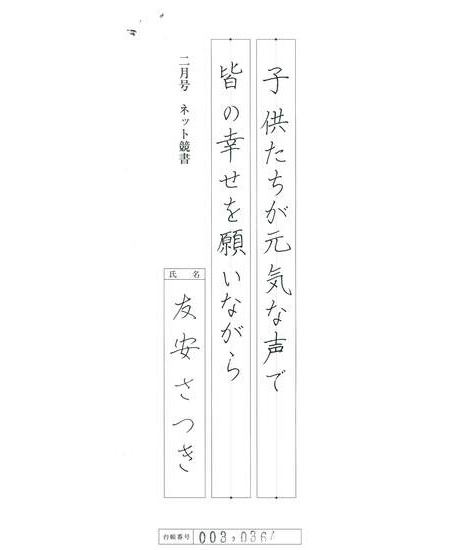 子供たちが元気な声で
皆の幸せを願いながら
二月号 ネット競書
氏 名
友安さつき
台帳番号 003,0364